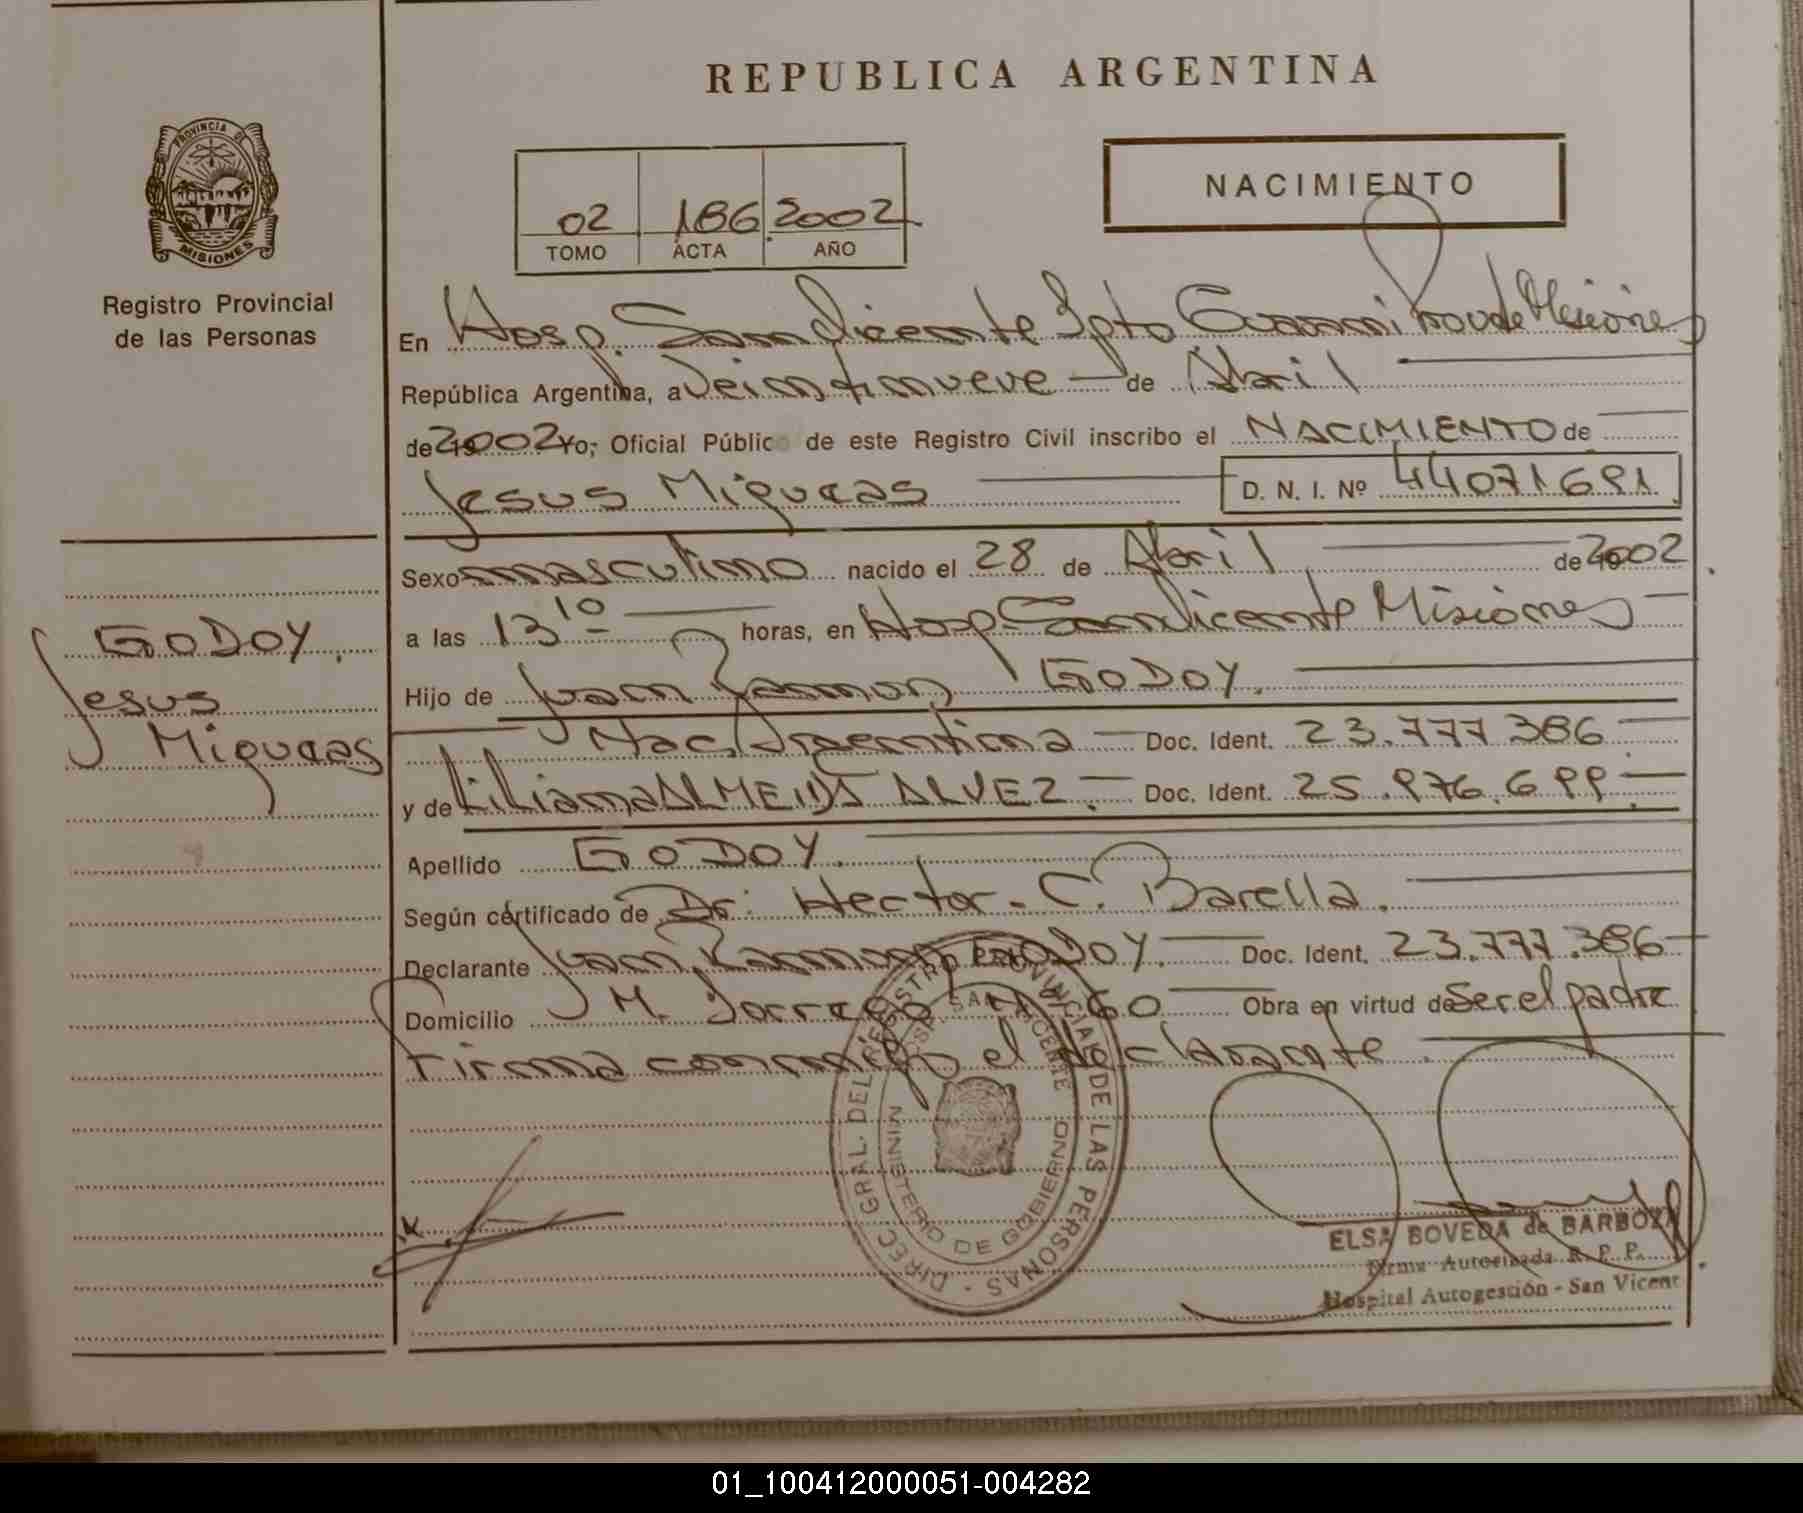 REPUBLICA ARGENTINA
PROVINCIA DE
MISIONES
Registro Provincial
de las Personas
02 186 2002
TOMO ACTA AÑO
NACIMIENTO
En Hosp. San Vicente Dpto Guarani Prov de Misiones
República Argentina, a Veintinueve de Abril
de 2002 Yo, Oficial Público de este Registro Civil inscribo el NACIMIENTO de
Jesus Miqueas D. N. I. Nº 44071691
Sexo masculino nacido el 28 de Abril de 2002
a las 13 10 horas, en Hosp San Vicente Misiones
Hijo de Juan Ramon GODOY.
Nac. Argentina Doc. Ident. 23.777 386
y de Liliana ALMEIDA ALVEZ. Doc. Ident. 25.976.699
Apellido GODOY.
Según certificado de Dr. Hector. C. Barella.
Declarante Juan Ramon GODOY. Doc. Ident. 23.777.386
Domicilio M. 60 Obra en virtud de Ser el padre
Firma conmigo el declarante
GODOY.
Jesus
Miqueas
DIREC GRAL. DEL REGISTRO PROVINCIAL DE LAS PERSONAS
SAN VICENTE
MINISTERIO DE GOBIERNO
ELSA BOVEDA de BARBOZA
Firma Autorizada R. P. P.
Hospital Autogestión - San Vicent
01_100412000051-004282